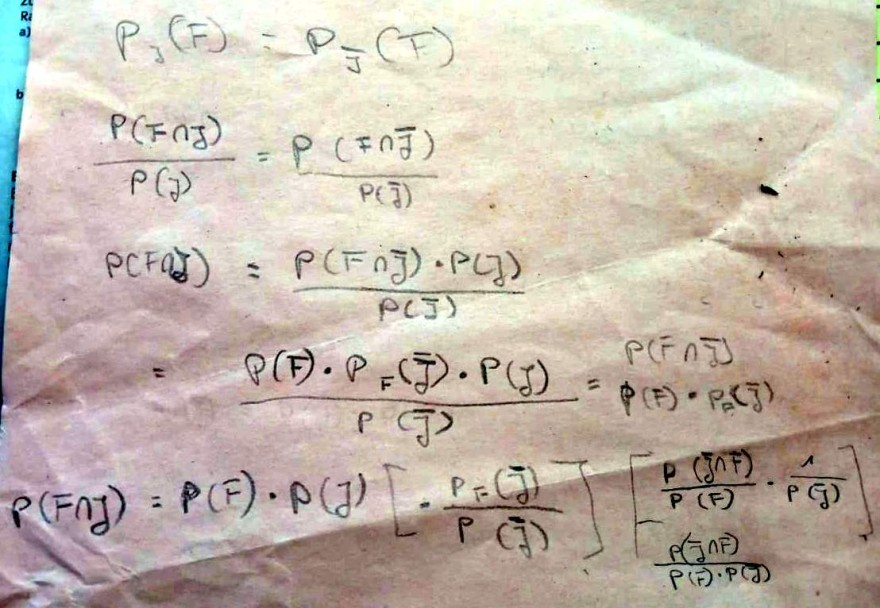 Ra
a)
b
P_J(F) = P_J̄(F)
P(F∩J)/P(J) = P(F∩J̄)/P(J̄)
P(F∩J) = P(F∩J̄)·P(J)/P(J̄)
= P(F)·P_F(J̄)·P(J)/P(J̄) = P(F∩J̄)
P(F)·P_F(J̄)
P(F∩J) = P(F)·P(J) [·P_F(J̄)/P(J̄)] [P(J̄∩F)/P(F) · 1/P(J̄)]
P(J̄∩F)/P(F)·P(J̄)